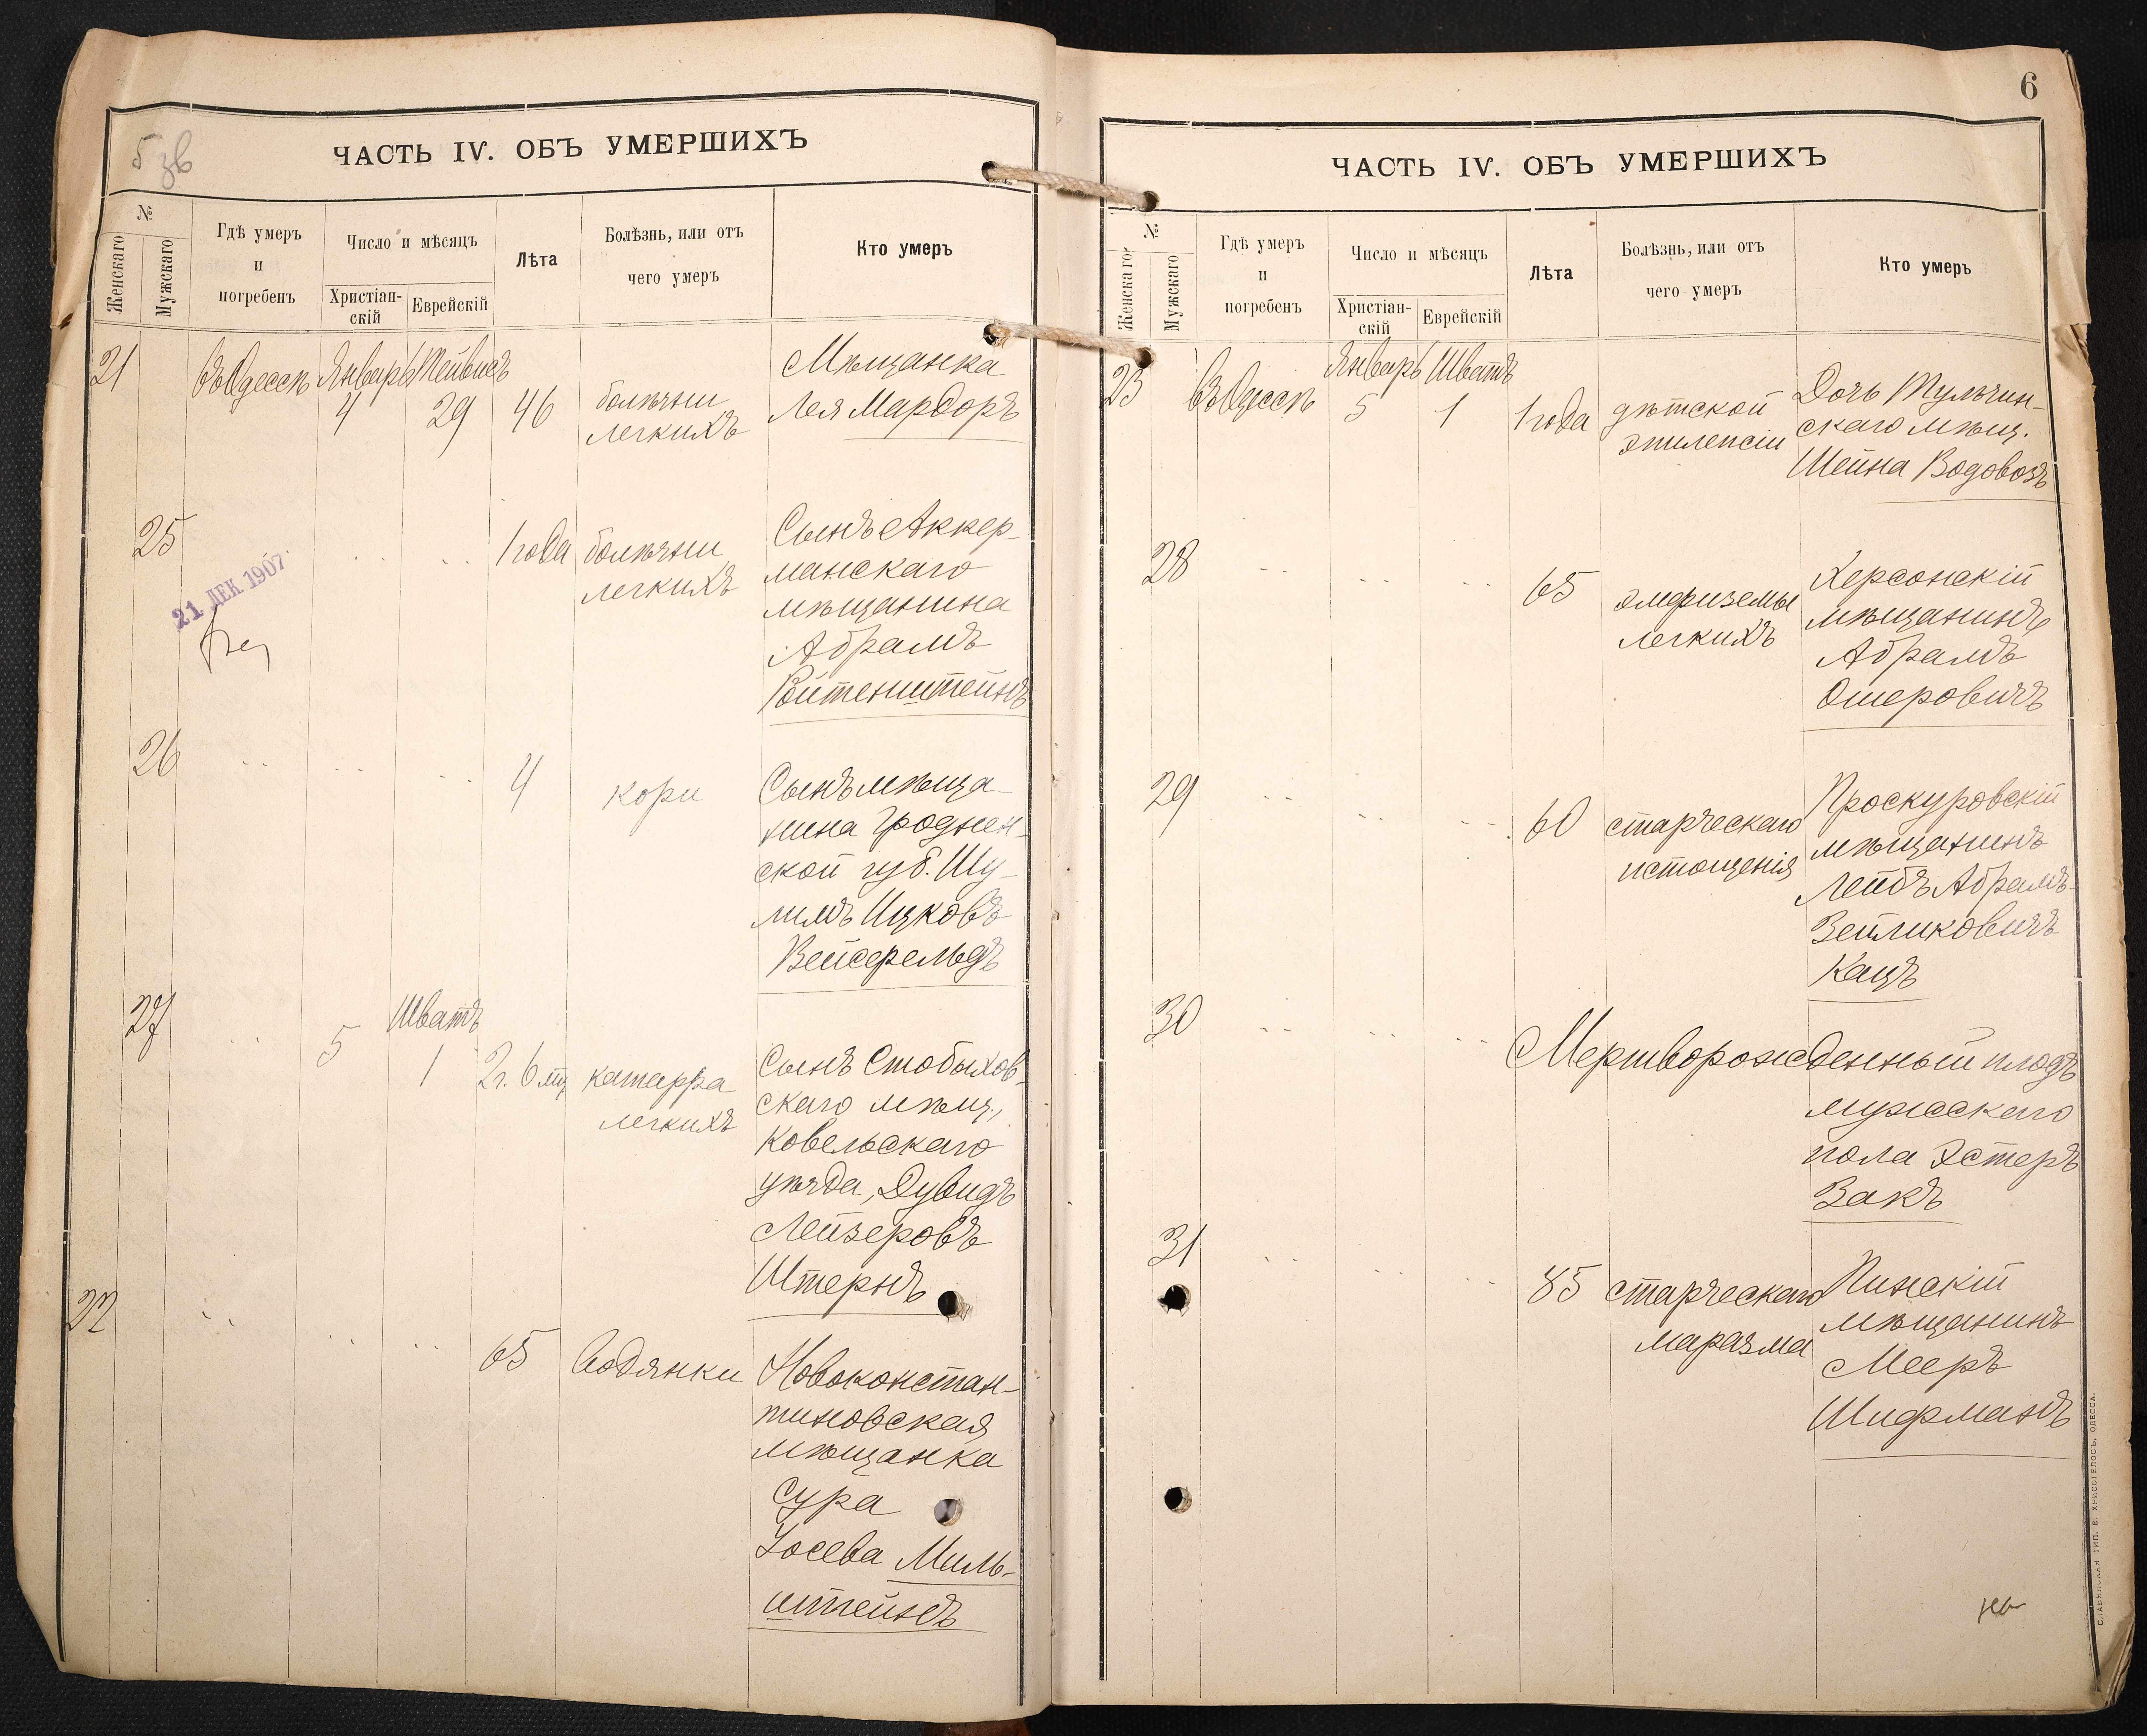 5 зв
ЧАСТЬ IV. ОБЪ УМЕРШИХЪ
№
Женскаго
Мужскаго
Гдѣ умеръ
и
погребенъ
Число и мѣсяцъ
Христіан-
скій
Еврейскій
Лѣта
Болѣзнь, или отъ
чего умеръ
Кто умеръ
21
въ Одессѣ
Январь
4
Тейвисъ
29
46
болѣзни
легкихъ
Мѣщанка
Лея Мардоръ
25
1 года
болѣзни
легкихъ
Сынъ Аккер-
манскаго
мѣщанина
Абрамъ
Ройтенштейнъ
21 ДЕК 1907
26
4
кори
Сынъ мѣща-
нина Гроднен-
ской губ. Шу-
лимъ Ицковъ
Вейсфельдъ
27
5
Шватъ
1
2 г. 6 мц
катарра
легкихъ
Сынъ Стобыхов-
скаго мѣщ.,
Ковельскаго
уѣзда, Дувидъ
Лейзеровъ
Штернъ
22
65
водянки
Новоконстан-
тиновская
мѣщанка
Сура
Іосева Миль-
штейнъ
6
ЧАСТЬ IV. ОБЪ УМЕРШИХЪ
№
Женскаго
Мужскаго
Гдѣ умеръ
и
погребенъ
Число и мѣсяцъ
Христіан-
скій
Еврейскій
Лѣта
Болѣзнь, или отъ
чего умеръ
Кто умеръ
23
въ Одессѣ
Январь
5
Шватъ
1
1 года
дѣтской
эпилепсіи
Дочь Тульчин-
скаго мѣщ.
Шейна Водовозъ
28
65
эмфиземы
легкихъ
Херсонскій
мѣщанинъ
Абрамъ
Ошеровичъ
29
60
старческаго
истощенія
Проскуровскій
мѣщанинъ
Лейбъ Абрамъ-
Зейликовичъ
Кацъ
30
Мертворожденный плодъ
мужескаго
пола Эстеръ
Закъ
31
85
старческаго
маразма
Пинскій
мѣщанинъ
Мееръ
Шифманъ
ТИП. Е. ХРИСОГЕЛОСЪ, ОДЕССА.